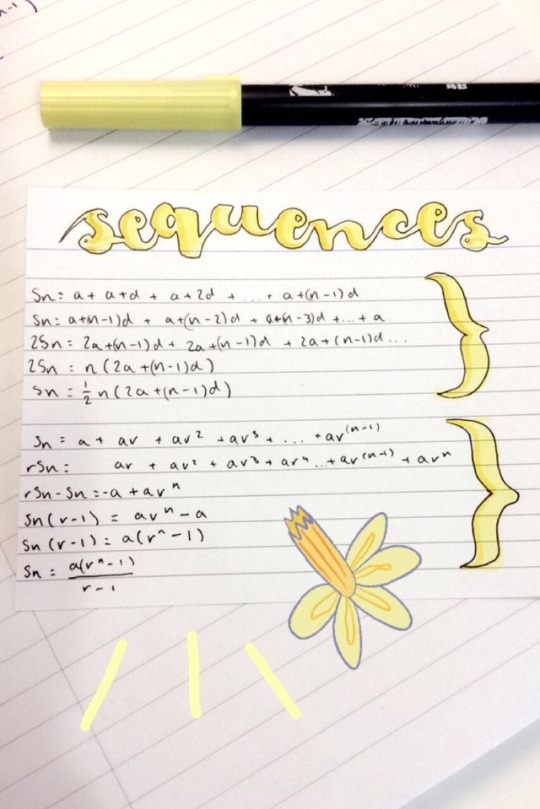 n-1)
sequences
Sn = a + a+d + a+2d + ... + a+(n-1)d
Sn = a+(n-1)d + a+(n-2)d + a+(n-3)d + ... + a
2Sn = 2a+(n-1)d + 2a+(n-1)d + 2a+(n-1)d ...
2Sn = n(2a+(n-1)d)
Sn = 1/2 n(2a+(n-1)d)
Sn = a + ar + ar² + ar³ + ... + ar⁽ⁿ⁻¹⁾
rSn = ar + ar² + ar³ + ar⁴ ... + ar⁽ⁿ⁻¹⁾ + arⁿ
rSn - Sn = -a + arⁿ
Sn(r-1) = arⁿ - a
Sn(r-1) = a(rⁿ-1)
Sn = a(rⁿ-1)
r-1